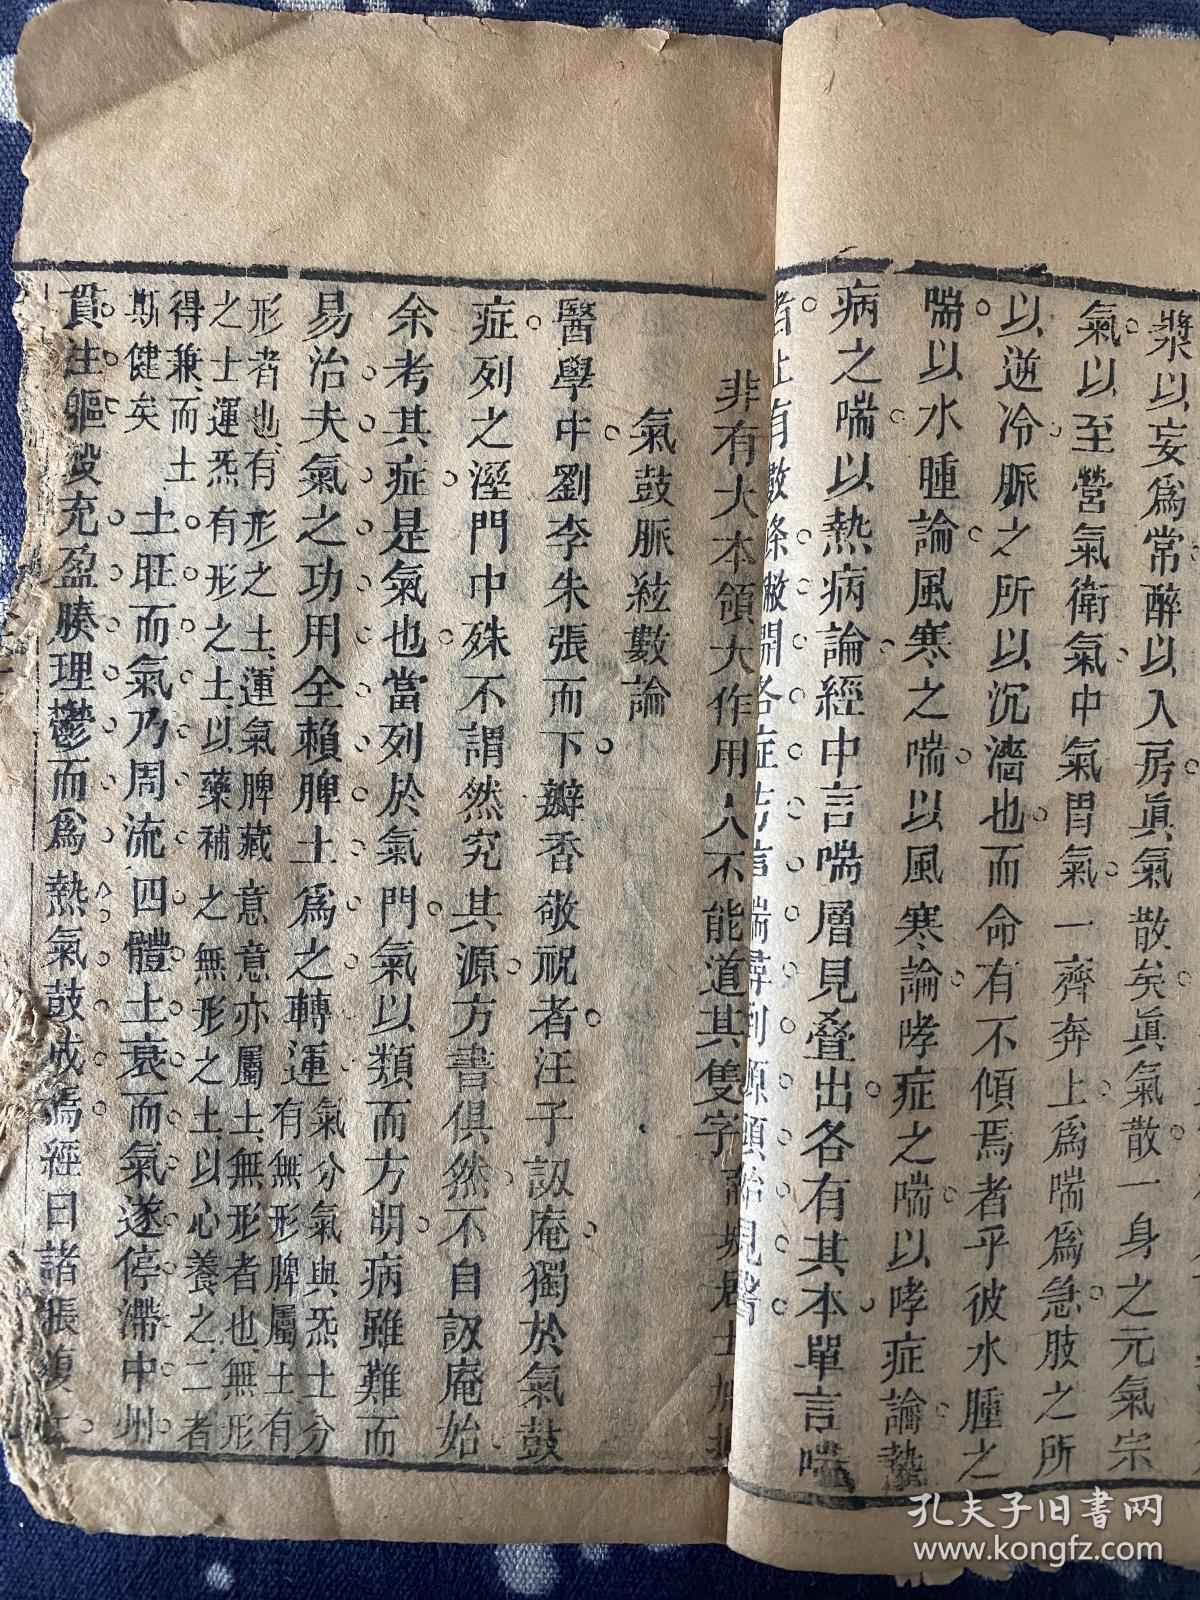 漿以妄爲常醉以入房眞氣散矣眞氣散一身之元氣宗
氣以至營氣衛氣中氣胃氣一齊奔上爲喘爲急肢之所
以逆冷脈之所以沉濇也而命有不傾焉者乎彼水腫之
喘以水腫論風寒之喘以風寒論哮症之喘以哮症論熱
病之喘以熱病論經中言喘層見叠出各有其本單言喘
者止有數條撇開各症專言喘尋到源頭始見醫
非有大本領大作用人不能道其隻字
氣鼓脈絃數論
醫學中劉李朱張而下瓣香敬祝者汪子訒庵獨於氣鼓
症列之溼門中殊不謂然究其源方書俱然不自訒庵始
余考其症是氣也當列於氣門氣以類而方明病雖難而
易治夫氣之功用全賴脾土爲之轉運氣分氣與炁土分
有無形脾屬土有
形者也有形之土運氣脾藏意意亦屬土無形者也無形
之土運炁有形之土以藥補之無形之土以心養之二者
得兼而土
斯健矣土旺而氣乃周流四體土衰而氣遂停滯中州
賁注軀殼充盈腠理鬱而爲熱氣鼓成焉經曰諸脹腹
孔夫子旧书网
www.kongfz.com